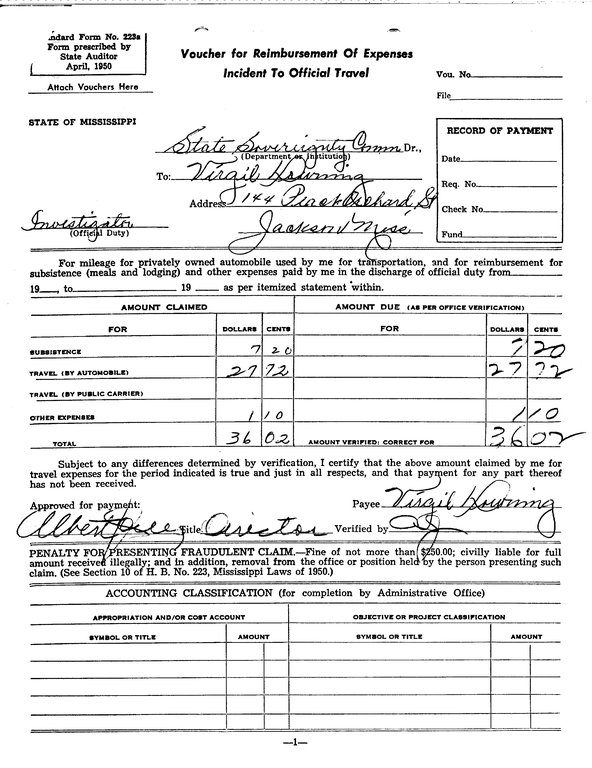 ndard Form No. 223a
Form prescribed by
State Auditor
April, 1950
Attach Vouchers Here
Voucher for Reimbursement Of Expenses
Incident To Official Travel
Vou. No.
File
STATE OF MISSISSIPPI
State Sovereignty Comm Dr.,
(Department or Institution)
To: Virgil Downing
Address 144 Peach Orchard St
Jackson Miss
Investigator
(Official Duty)
RECORD OF PAYMENT
Date
Req. No.
Check No.
Fund
For mileage for privately owned automobile used by me for transportation, and for reimbursement for
subsistence (meals and lodging) and other expenses paid by me in the discharge of official duty from
19___, to 19 ___ as per itemized statement within.
AMOUNT CLAIMED AMOUNT DUE (AS PER OFFICE VERIFICATION)
FOR DOLLARS CENTS FOR DOLLARS CENTS
SUBSISTENCE 7 20 7 20
TRAVEL (BY AUTOMOBILE) 27 72 27 72
TRAVEL (BY PUBLIC CARRIER)
OTHER EXPENSES 1 10 1 10
TOTAL 36 02 AMOUNT VERIFIED: CORRECT FOR 36 02
Subject to any differences determined by verification, I certify that the above amount claimed by me for
travel expenses for the period indicated is true and just in all respects, and that payment for any part thereof
has not been received.
Approved for payment: Payee Virgil Downing
Albert Title Director Verified by
PENALTY FOR PRESENTING FRAUDULENT CLAIM.—Fine of not more than $250.00; civilly liable for full
amount received illegally; and in addition, removal from the office or position held by the person presenting such
claim. (See Section 10 of H. B. No. 223, Mississippi Laws of 1950.)
ACCOUNTING CLASSIFICATION (for completion by Administrative Office)
APPROPRIATION AND/OR COST ACCOUNT OBJECTIVE OR PROJECT CLASSIFICATION
SYMBOL OR TITLE AMOUNT SYMBOL OR TITLE AMOUNT
—1—